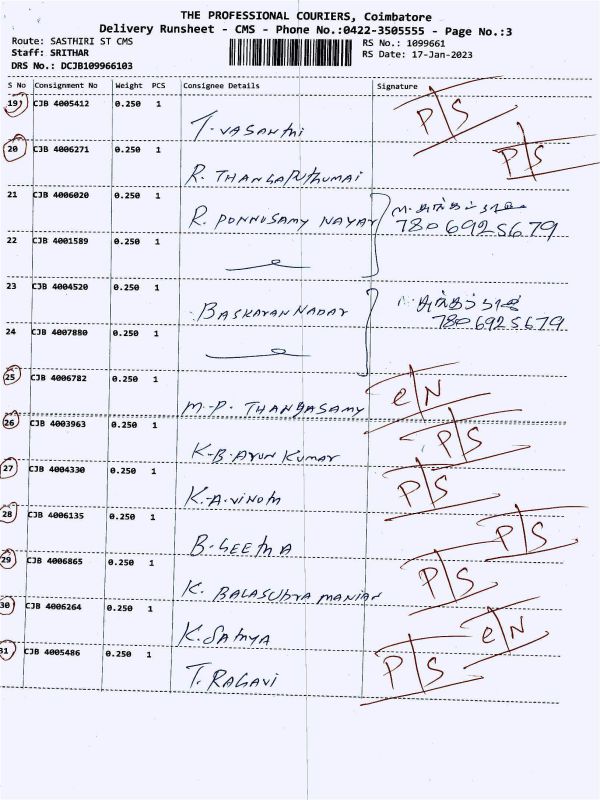 THE PROFESSIONAL COURIERS, Coimbatore
Delivery Runsheet - CMS - Phone No.:0422-3505555 - Page No.:3
Route: SASTHIRI ST CMS RS No.: 1099661
Staff: SRITHAR RS Date: 17-Jan-2023
DRS No.: DCJB109966103
S No Consignment No Weight PCS Consignee Details Signature
19 CJB 4005412 0.250 1 T. VASANTHI P/S
20 CJB 4006271 0.250 1 R. THANGAPUTHUMAI P/S
21 CJB 4006020 0.250 1 R. PONNUSAMY NAYAR
7806925679
22 CJB 4001589 0.250 1
23 CJB 4004520 0.250 1 BASKARAN NADAR
7806925679
24 CJB 4007880 0.250 1
25 CJB 4006782 0.250 1 M.P. THANGASAMY e/N
26 CJB 4003963 0.250 1 K.B. ARUN KUMAR P/S
27 CJB 4004330 0.250 1 K.A. VINOTH P/S
28 CJB 4006135 0.250 1 B. GEETHA P/S
29 CJB 4006865 0.250 1 K. BALASUBRAMANIAN P/S
30 CJB 4006264 0.250 1 K. SATHYA e/N
31 CJB 4005486 0.250 1 T. RAGAVI P/S